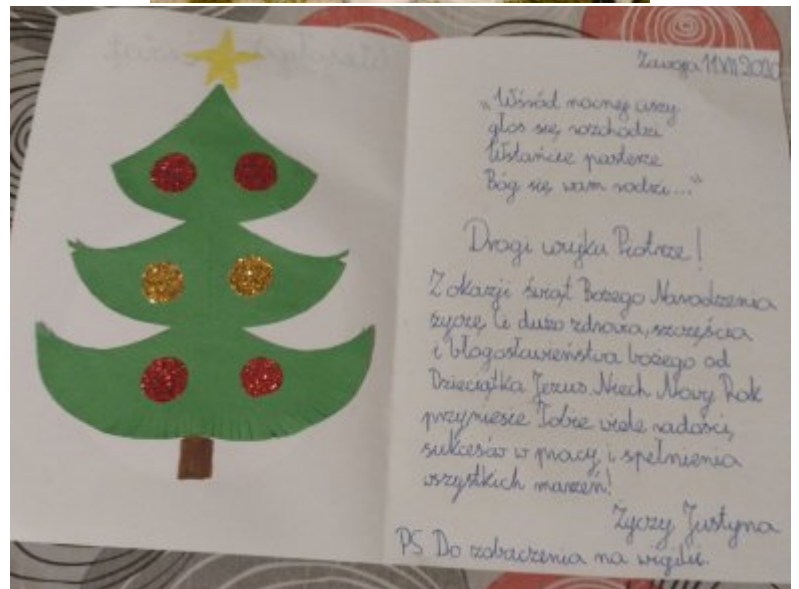 Zawoja 11 XII 2020
„Wśród nocnej ciszy
głos się rozchodzi
Wstańcie pasterze
Bóg się wam rodzi..."
Drogi wujku Piotrze!
Z okazji świąt Bożego Narodzenia
życzę Ci dużo zdrowia, szczęścia
i błogosławieństwa bożego od
Dzieciątka Jezus. Niech Nowy Rok
przyniesie Tobie wiele radości,
sukcesów w pracy i spełnienia
wszystkich marzeń!
Życzy Justyna
PS Do zobaczenia na wigilii.